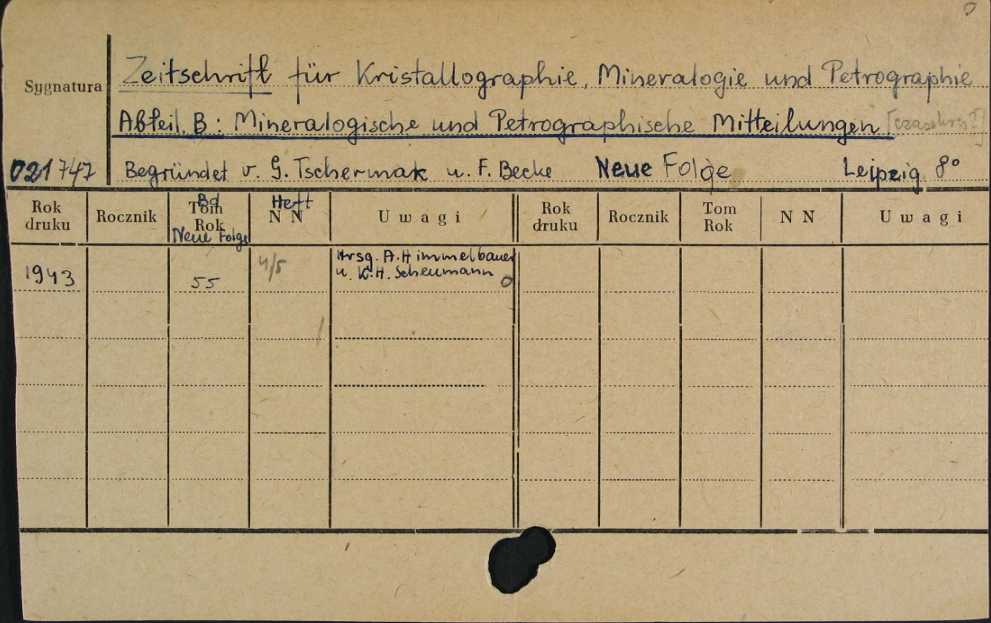 Sygnatura
Zeitschrift für Kristallographie, Mineralogie und Petrographie
Abteil. B: Mineralogische und Petrographische Mitteilungen
021747 Begründet v. G. Tschermak u. F. Becke Neue Folge Leipzig 8°
Rok druku Rocznik Tom Rok Bd Neue Folge N N Heft Uwagi Rok druku Rocznik Tom Rok N N Uwagi
1943 55 4/5 Hrsg. A. Himmelbauer
u. K.H. Scheumann